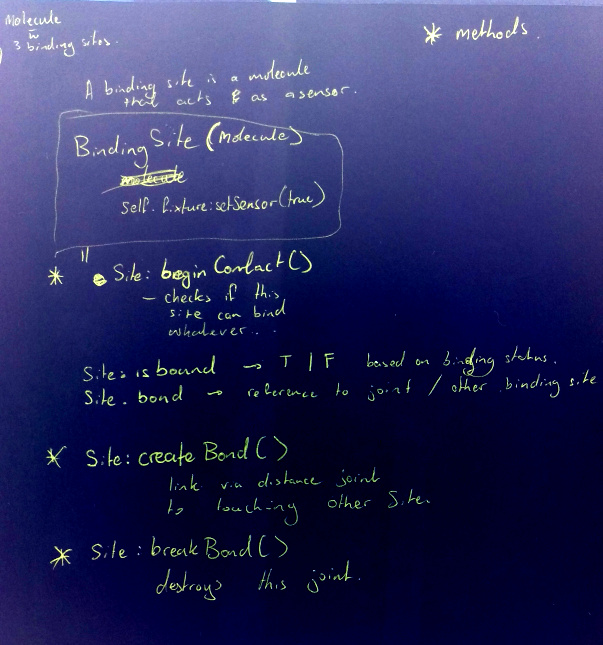 Molecule
w
3 binding sites.
* methods.
A binding site is a molecule
that acts as a sensor.
Binding Site (Molecule)
molecule
self.fixture:setSensor(true)
* Site: begin Contact()
– checks if this
site can bind
whatever...
Site: is bound → T / F based on binding status.
Site. bond → reference to joint / other binding site
* Site: create Bond()
link via distance joint
to touching other Site.
* Site: break Bond()
destroys this joint.